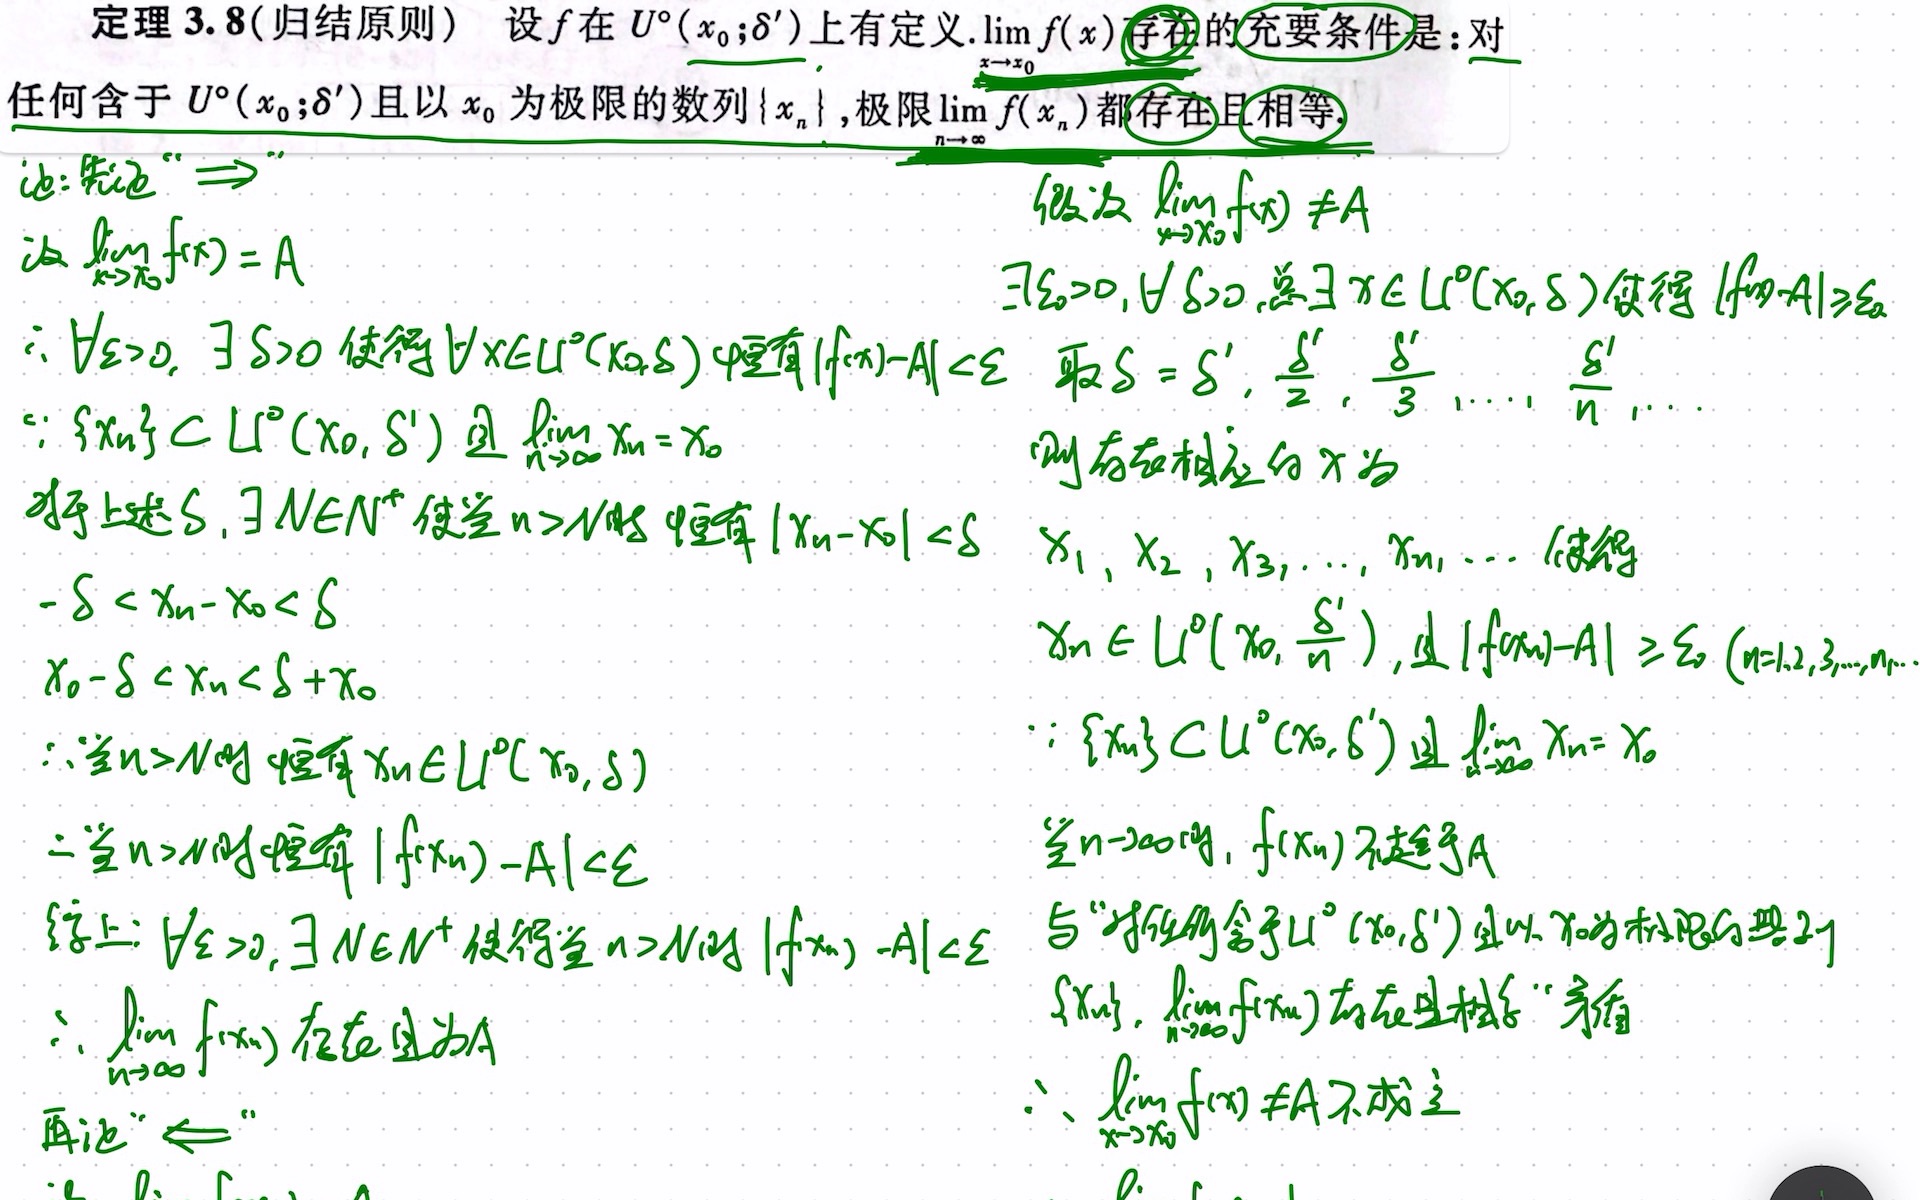 定理 3.8(归结原则) 设 f 在 U°(x₀;δ′)上有定义.lim f(x)存在的充要条件是:对
x→x₀
任何含于 U°(x₀;δ′)且以 x₀ 为极限的数列{xₙ},极限lim f(xₙ)都存在且相等.
n→∞
证:先证“⇒”
设 lim f(x) = A
x→x₀
∴ ∀ε>0, ∃δ>0 使得∀x∈U°(x₀,δ)恒有|f(x)-A|<ε
∵ {xₙ}⊂U°(x₀,δ′)且 lim xₙ=x₀
n→∞
对于上述δ,∃N∈N⁺ 使当n>N时 恒有|xₙ-x₀|<δ
-δ<xₙ-x₀<δ
x₀-δ<xₙ<δ+x₀
∴当n>N时 恒有xₙ∈U°(x₀,δ)
∴当n>N时恒有|f(xₙ)-A|<ε
综上:∀ε>0,∃N∈N⁺使得当n>N时|f(xₙ)-A|<ε
∴ lim f(xₙ)存在且为A
n→∞
再证“⇐”
假设 lim f(x)≠A
x→x₀
∃ε₀>0,∀δ>0,总∃x∈U°(x₀,δ)使得|f(x)-A|≥ε₀
取δ=δ′, δ′/2, δ′/3, ..., δ′/n, ...
则存在相应的x为
x₁, x₂, x₃, ..., xₙ, ... 使得
xₙ∈U°(x₀, δ′/n),且|f(xₙ)-A|≥ε₀ (n=1,2,3,...,n,...
∵ {xₙ}⊂U°(x₀,δ′)且 lim xₙ=x₀
n→∞
当n→∞时,f(xₙ)不趋于A
与“对任何含于U°(x₀,δ′)且以x₀为极限的数列
{xₙ}, lim f(xₙ)存在且相等“矛盾
n→∞
∴ lim f(x)≠A不成立
x→x₀